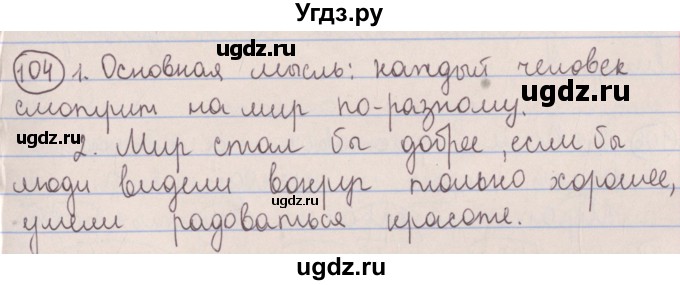 Угдз.ру
ugdz.ru
ugdz.ru
ugdz.ru
104 1. Основная мысль: каждый человек
смотрит на мир по-разному.
ugdz.ru
2. Мир стал бы добрее, если бы
люди видели вокруг только хорошее,
умели радоваться красоте.
ugdz.ru
ugdz.ru
ugdz.ru